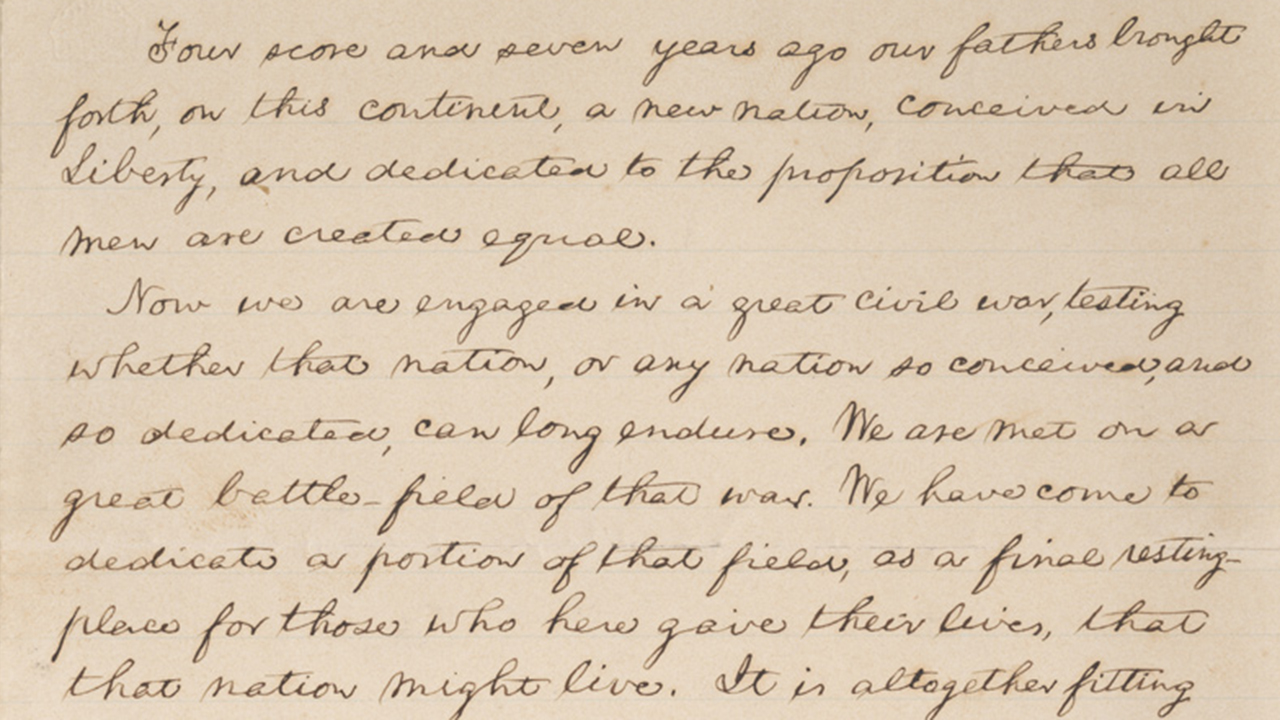 Four score and seven years ago our fathers brought
forth, on this continent, a new nation, conceived in
Liberty, and dedicated to the proposition that all
men are created equal.
Now we are engaged in a great civil war, testing
whether that nation, or any nation so conceived, and
so dedicated, can long endure. We are met on a
great battle-field of that war. We have come to
dedicate a portion of that field, as a final resting-
place for those who here gave their lives, that
that nation might live. It is altogether fitting